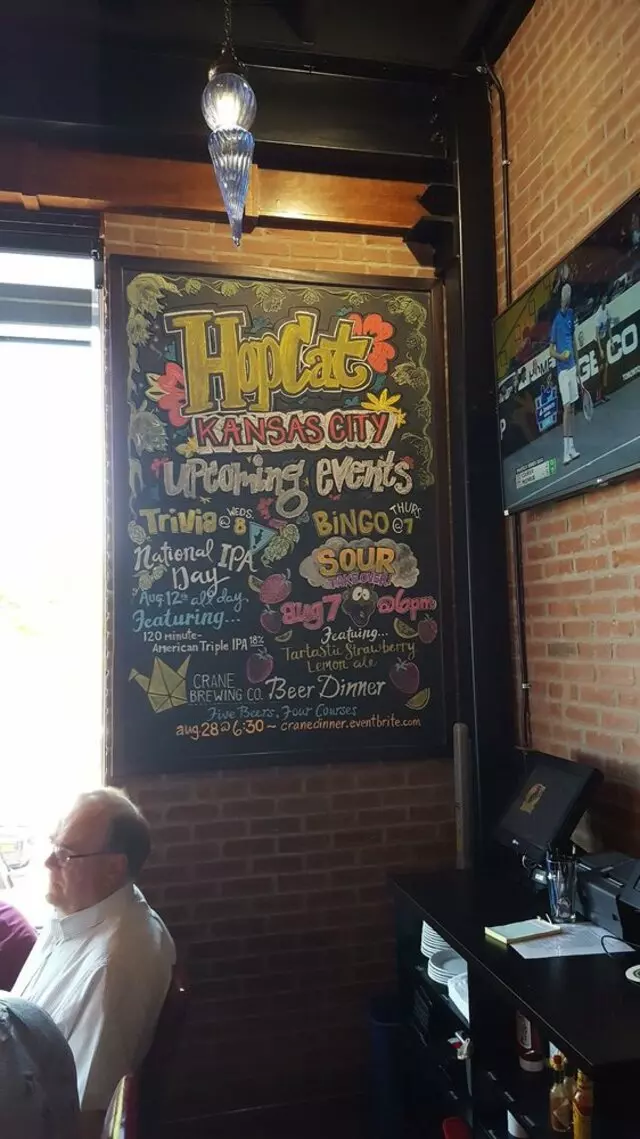 HopCat
KANSAS CITY
upcoming events
Trivia @ WEDS. 8
BINGO THURS @ 7
National IPA Day
Aug 12th all day
Featuring...
120 minute-
American Triple IPA 18%
SOUR
TAKEOVER!
aug 7 @ 6pm
Featuring...
Tartastic Strawberry
Lemon ale
CRANE
BREWING CO. Beer Dinner
Five Beers, Four Courses
aug 28 @ 6:30 ~ cranedinner.eventbrite.com